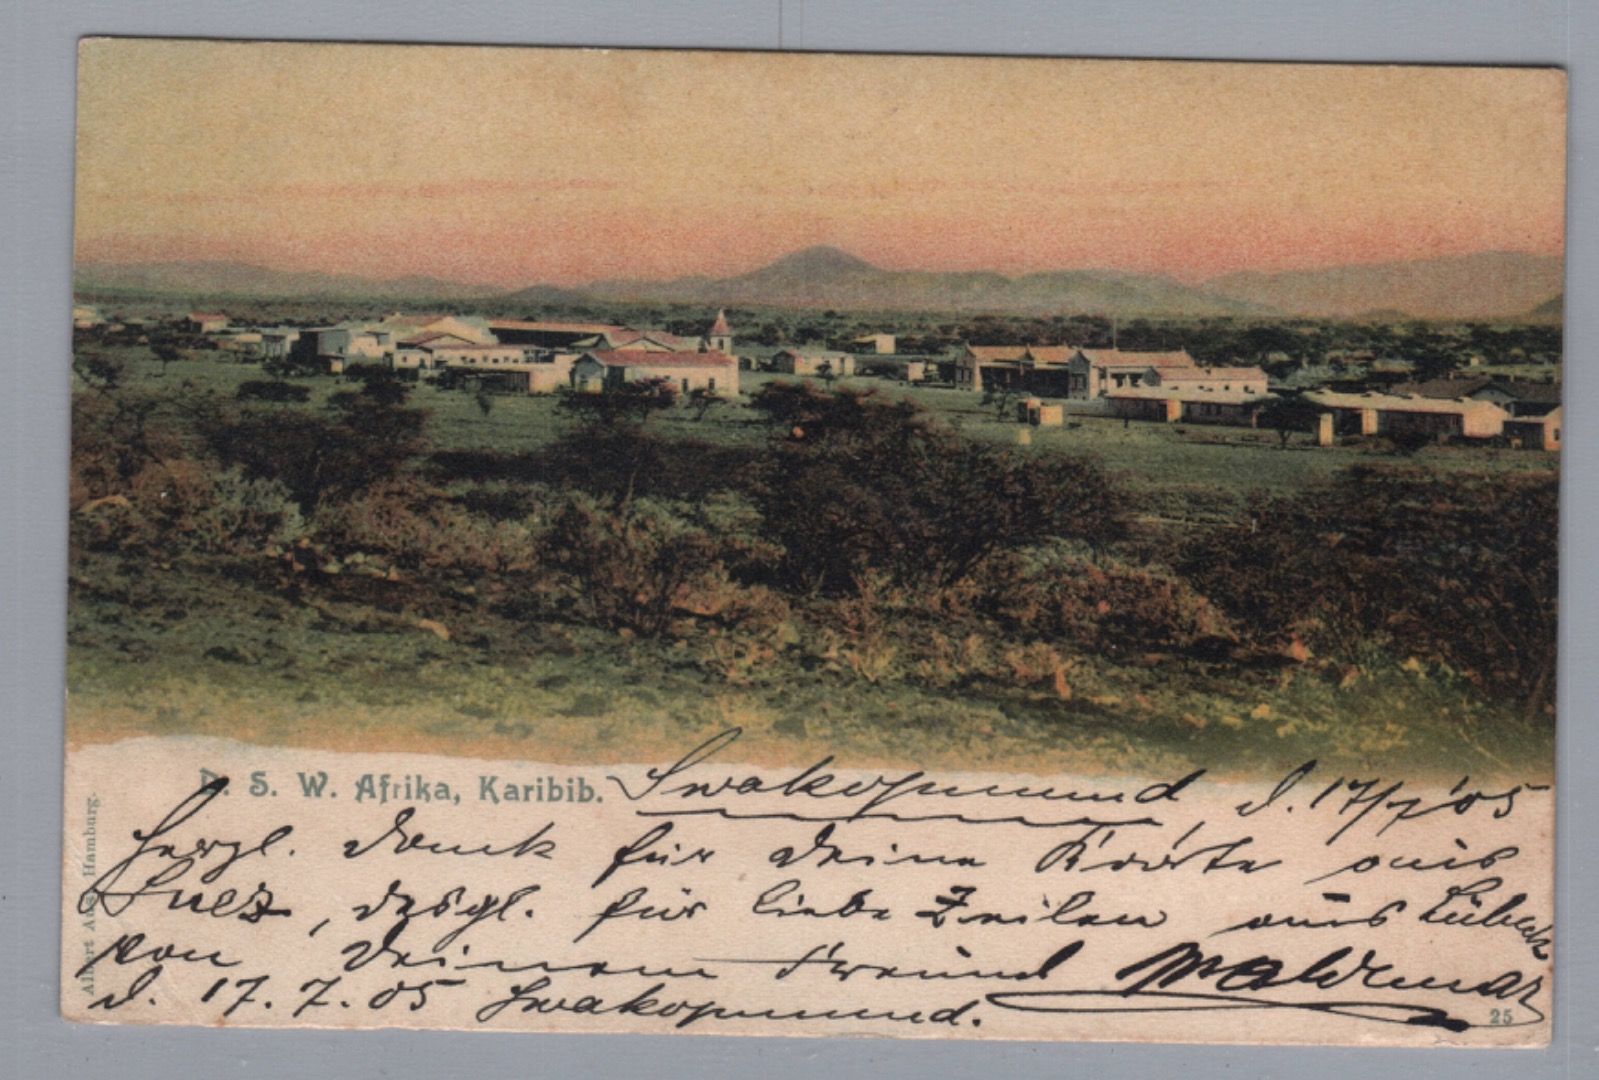 D. S. W. Afrika, Karibib.
Swakopmund, d. 17/7/05
Herzl. Dank für Deine Karte aus
Suez, desgl. für liebe Zeilen aus Lübeck
von Deinem Freund Waldemar
d. 17. 7. 05 Swakopmund.
Albert Aust, Hamburg.
25